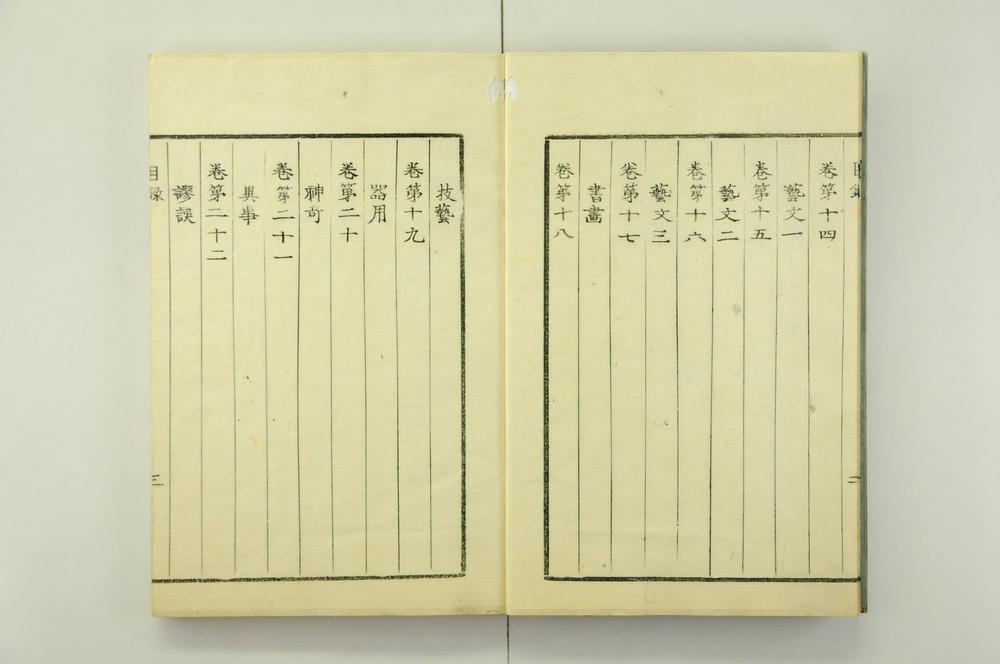 目錄
卷第十四
藝文一
卷第十五
藝文二
卷第十六
藝文三
卷第十七
書畫
卷第十八
二
技藝
卷第十九
器用
卷第二十
神奇
卷第二十一
異事
卷第二十二
謬誤
目錄
三